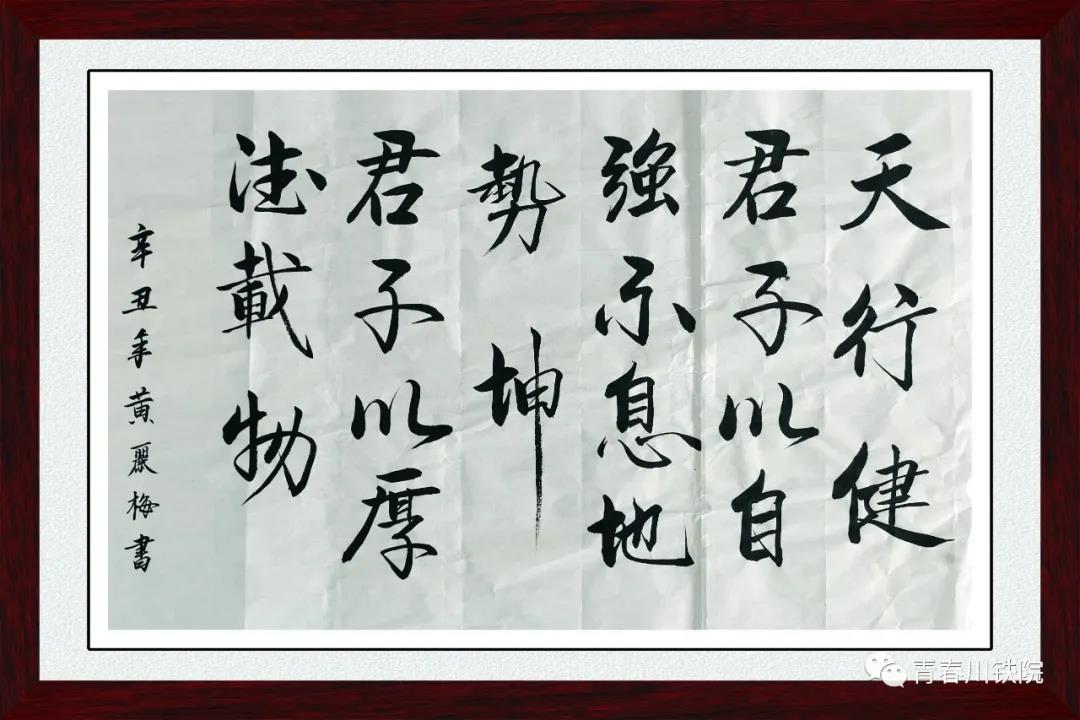 天行健
君子以自
強不息地
勢坤
君子以厚
德載物
辛丑年黄麗梅書
青春川铁院